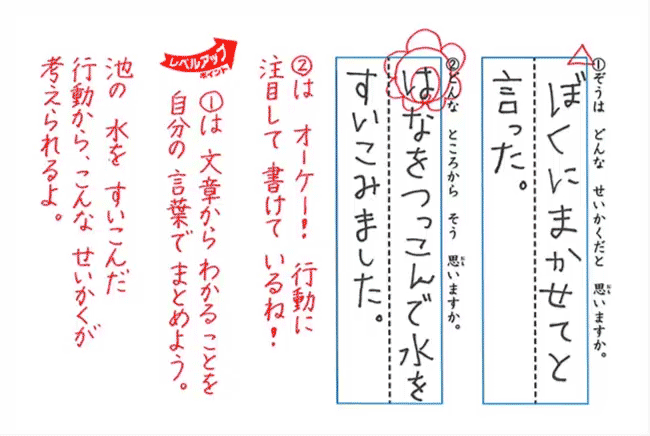 ①ぞうは どんな せいかくだと 思いますか。
おも
ぼくにまかせてと
言った。
②どんな ところから そう 思いますか。
おも
はなをつっこんで水を
すいこみました。
②は オーケー! 行動に
注目して 書けて いるね!
レベルアップ
ポイント
①は 文章から わかることを
自分の 言葉で まとめよう。
池の 水を すいこんだ
行動から、こんな せいかくが
考えられるよ。